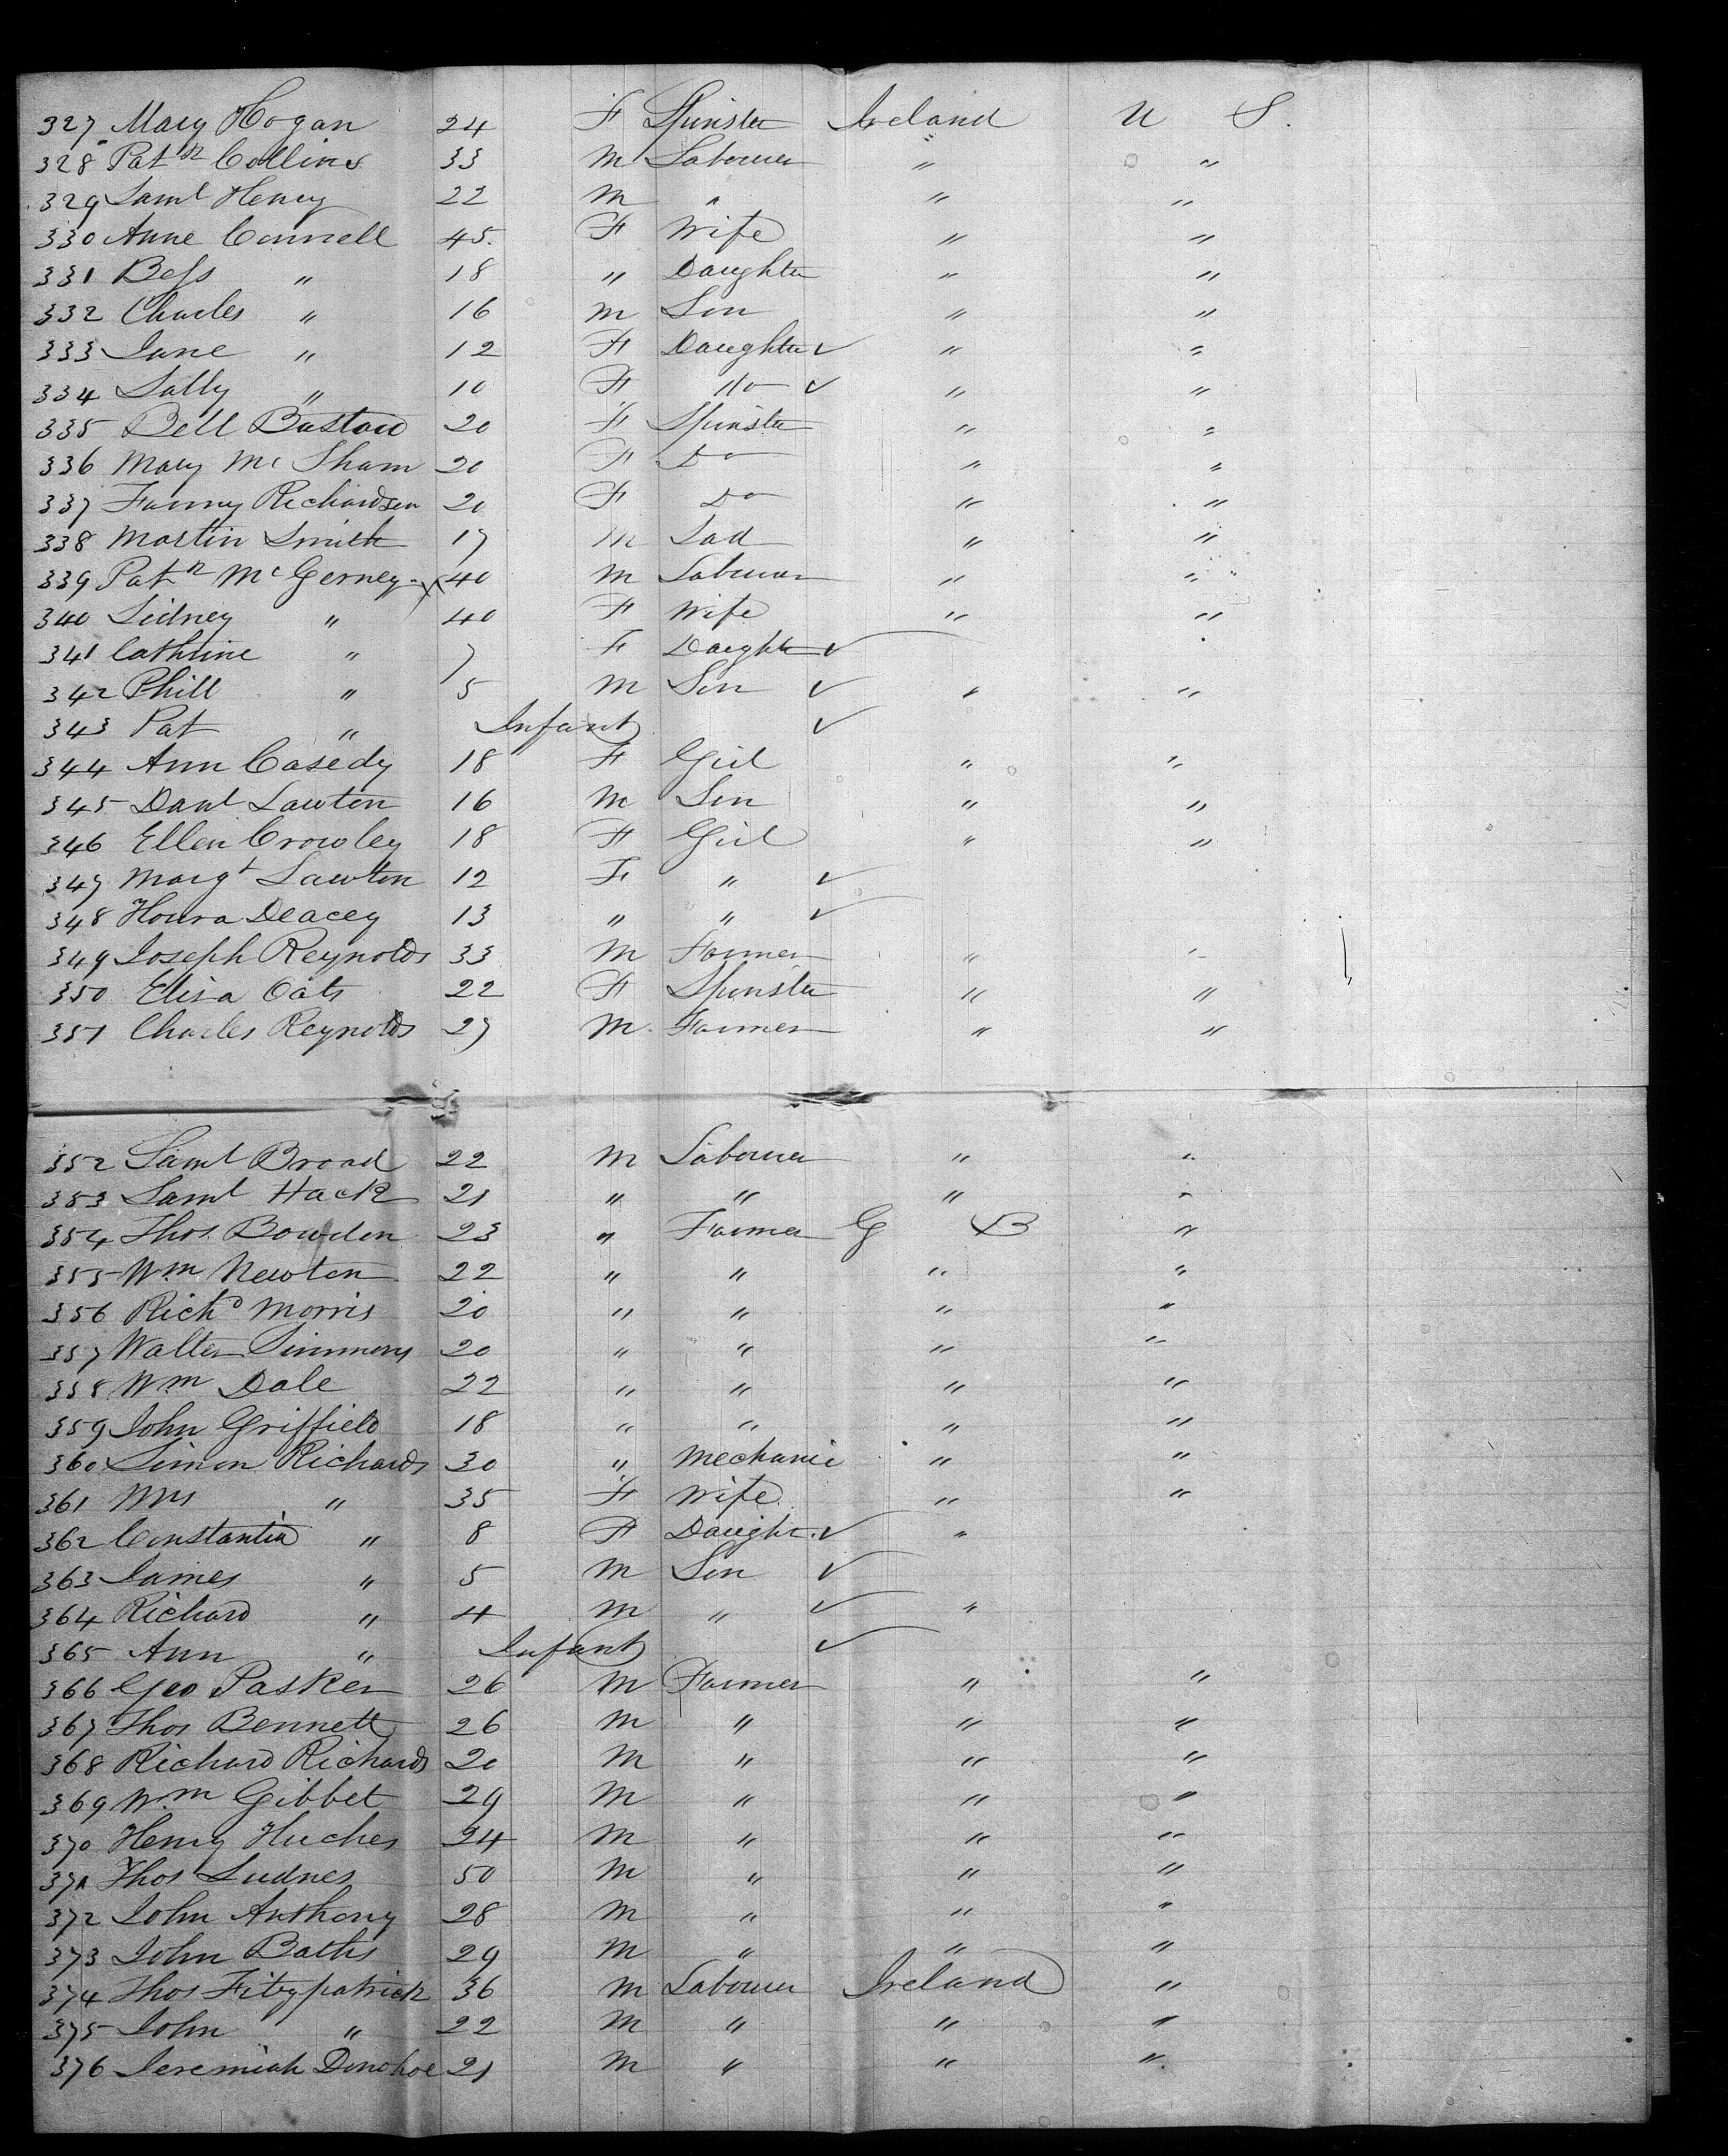 327 Mary Hogan 24 F Spinster Ireland U S.
328 Patk Collins 33 M Labourer " "
329 Saml Henry 22 M " " "
330 Anne Connell 45 F Wife " "
331 Bess " 18 " Daughter " "
332 Charles " 16 M Son " "
333 Jane " 12 F Daughter ✓ " "
334 Sally " 10 F Do ✓ " "
335 Bell 20 F Spinster " "
336 Mary Mc Sham 20 F Do " "
337 Fanny Richardson 20 F Do " "
338 Martin Smith 17 M Lad " "
339 Patk Mc Gerney X 40 M Labourer " "
340 Sidney " 40 F Wife " "
341 Cathrine " 7 F Daughter ✓
342 Phill " 5 M Son ✓ " "
343 Pat " Infant ✓
344 Ann Casedy 18 F Girl " "
345 Danl Lawton 16 M Son " "
346 Ellen Crowley 18 F Girl " "
347 Margt Lawton 12 F " ✓
348 Honra Deacey 13 " " ✓
349 Joseph Reynolds 33 M Farmer " "
350 Eliza Oats 22 F Spinster " "
351 Charles Reynolds 27 M Farmer " "
352 Saml Broad 22 M Labourer " "
353 Saml Hack 21 " " " "
354 Thos Bowden 23 " Farmer G B "
355 Wm Newton 22 " " " "
356 Richd Morris 20 " " " "
357 Walter Simmons 20 " " " "
358 Wm Dale 22 " " " "
359 John Griffield 18 " " " "
360 Simon Richards 30 " Mechanic " "
361 Mrs " 35 F Wife " "
362 Constantia " 8 F Daught. ✓ "
363 James " 5 M Son ✓
364 Richard " 4 M " ✓ "
365 Ann " Infant ✓
366 Geo Pasker 26 M Farmer " "
367 Thos Bennett 26 M " " "
368 Richard Richards 20 M " " "
369 Wm Gibbet 29 M " " "
370 Henry Huches 24 M " " "
371 Thos Ludnes 50 M " " "
372 John Anthony 28 M " " "
373 John Baths 29 M " " "
374 Thos Fitzpatrick 36 M Labourer Ireland "
375 John " 22 M " " "
376 Jeremiah Donohoe 21 M " " "